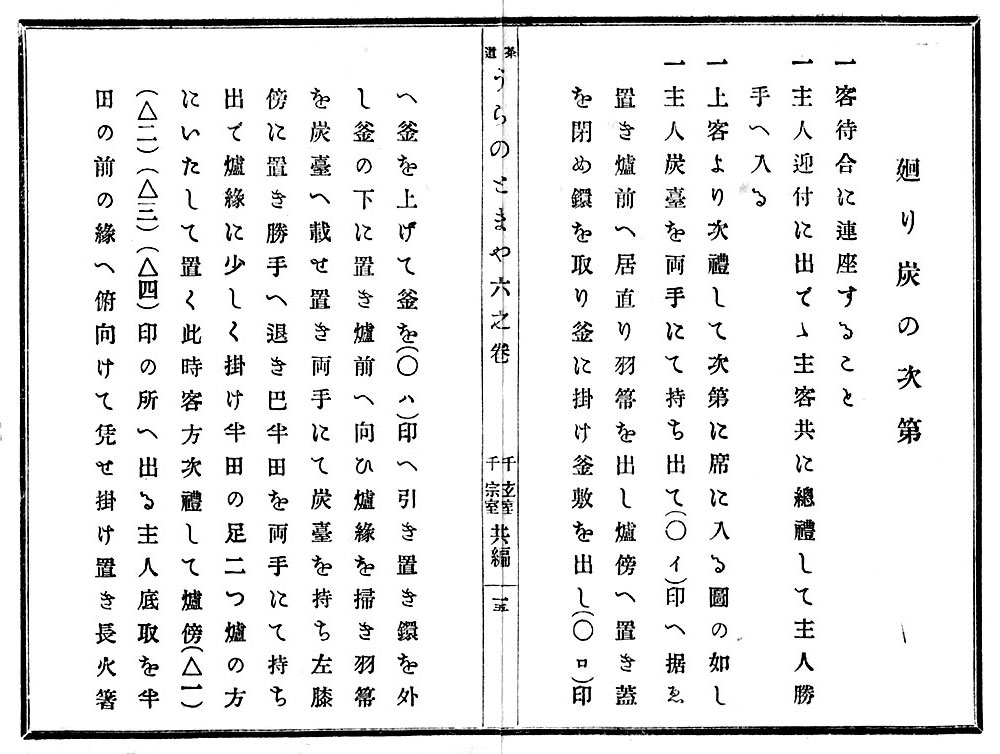 廻り炭の次第
一客待合に連座すること
一主人迎付に出でゝ主客共に總禮して主人勝
手へ入る
一上客より次禮して次第に席に入る圖の如し
一主人炭臺を両手にて持ち出て(〇イ)印へ据ゑ
置き爐前へ居直り羽箒を出し爐傍へ置き蓋
を閉め鐶を取り釜に掛け釜敷を出し(〇ロ)印
茶道
うらのとまや六之卷
千玄室
千宗室
共編
一五
へ釜を上げて釜を(〇ハ)印へ引き置き鐶を外
し釜の下に置き爐前へ向ひ爐緣を掃き羽箒
を炭臺へ載せ置き両手にて炭臺を持ち左膝
傍に置き勝手へ退き巴半田を両手にて持ち
出で爐緣に少しく掛け半田の足二つ爐の方
にいたして置く此時客方次禮して爐傍(△一)
(△二)(△三)(△四)印の所へ出る主人底取を半
田の前の緣へ俯向けて凭せ掛け置き長火箸